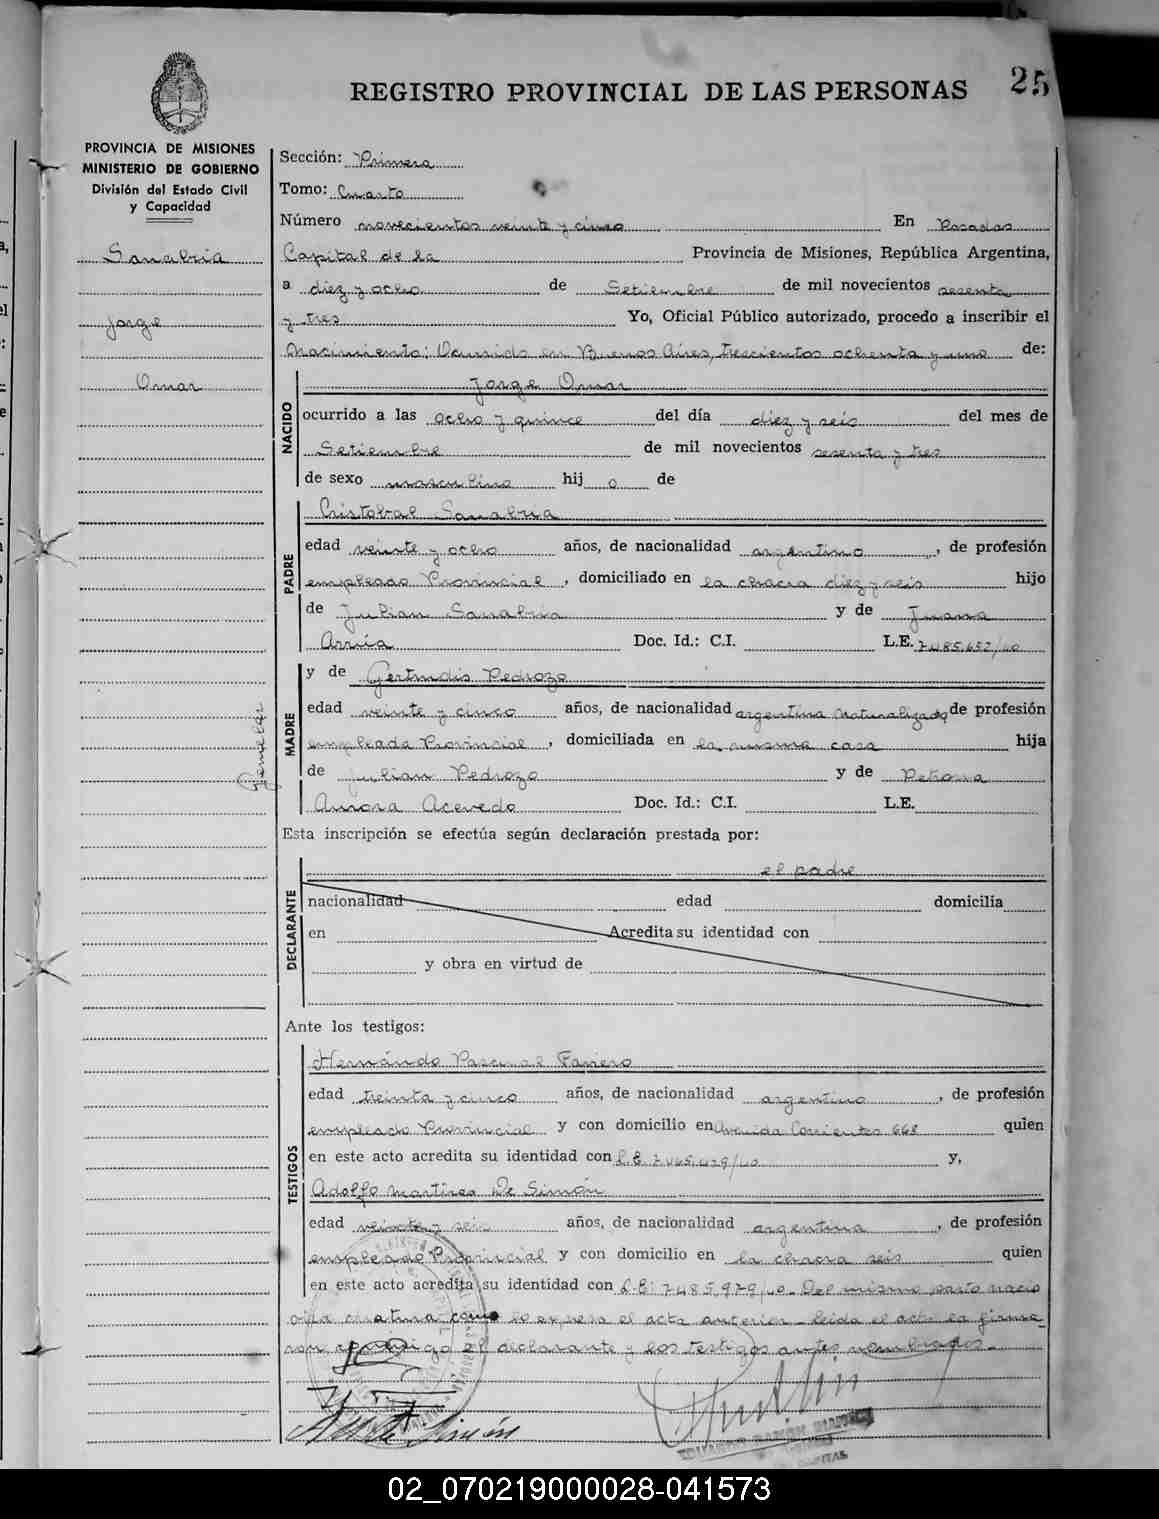 REGISTRO PROVINCIAL DE LAS PERSONAS
25
PROVINCIA DE MISIONES
MINISTERIO DE GOBIERNO
División del Estado Civil
y Capacidad
Sanabria
Jorge
Omar
Gemelar
Sección: Primera
Tomo: Cuarto
Número novecientos veinte y cinco En Posadas
Capital de la Provincia de Misiones, República Argentina,
a diez y ocho de Setiembre de mil novecientos sesenta
y tres Yo, Oficial Público autorizado, procedo a inscribir el
Nacimiento; Ocurrido en Buenos Aires, trescientos ochenta y uno de:
NACIDO
Jorge Omar
ocurrido a las ocho y quince del día diez y seis del mes de
Setiembre de mil novecientos sesenta y tres
de sexo masculino hij o de
PADRE
Cristobal Sanabria
edad veinte y ocho años, de nacionalidad argentino, de profesión
empleado Provincial, domiciliado en la chacra diez y seis hijo
de Julian Sanabria y de Juana
Arrúa Doc. Id.: C.I. L.E. 7.485.652/40
MADRE
y de Gertrudis Pedrozo
edad veinte y cinco años, de nacionalidad argentina naturalizada de profesión
empleada Provincial, domiciliada en la misma casa hija
de Julian Pedrozo y de Petrona
Aurora Acevedo Doc. Id.: C.I. L.E.
Esta inscripción se efectúa según declaración prestada por:
DECLARANTE
el padre
nacionalidad edad domicilia
en Acredita su identidad con
y obra en virtud de
Ante los testigos:
TESTIGOS
Hernándo Pascual
edad treinta y cinco años, de nacionalidad argentino, de profesión
empleado Provincial y con domicilio en Avenida Corrientes 668 quien
en este acto acredita su identidad con L.E. y,
Adolfo Martires De Simón
edad veinte y seis años, de nacionalidad argentina, de profesión
empleado Provincial y con domicilio en la chacra seis quien
en este acto acredita su identidad con L.E: 7.485.979/40. Del mismo parto nacio
otra criatura como lo expresa el acta anterior. Leida el acta la firma
ron conmigo el declarante y los testigos antes nombrados.
02_070219000028-041573